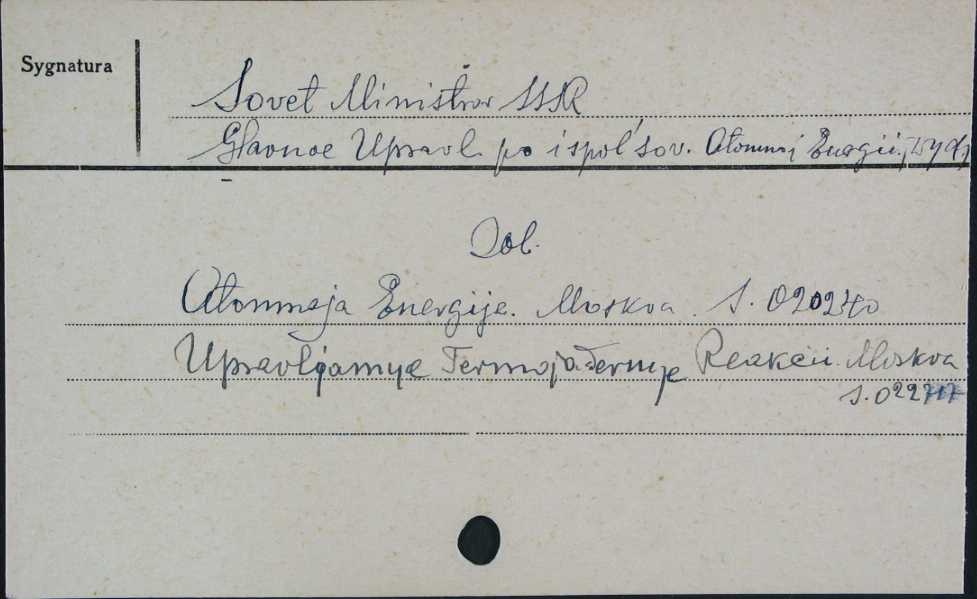 Sygnatura
Sovet Ministrov SSSR
Glavnoe Upravl. po ispol'sov. Atomnoj Energii, wyd.
Zob.
Atomnaja Energije. Moskva. S. 020240
Upravljamye Termojadernye Reakcii. Moskva
S. 022717